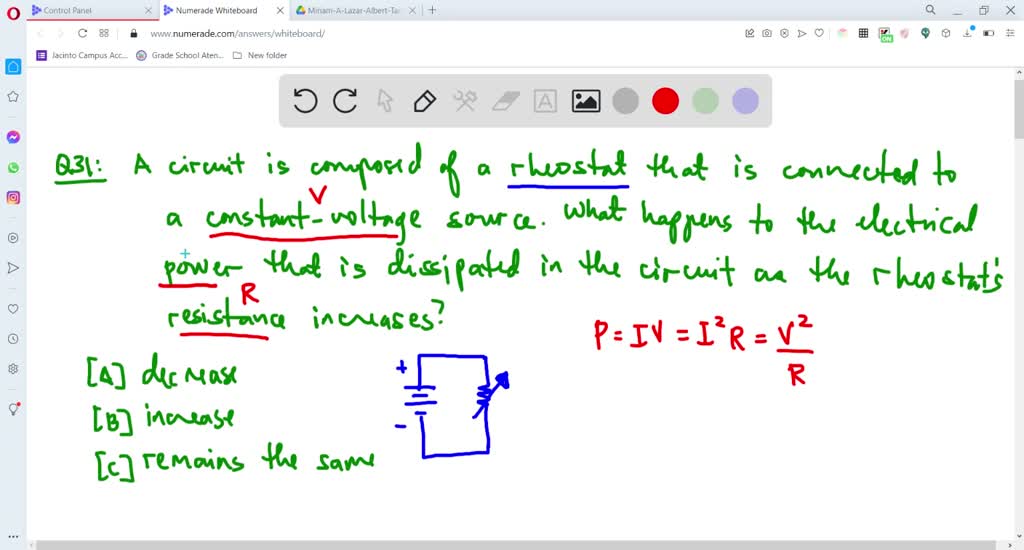 Control Panel
Numerade Whiteboard
Miriam-A-Lazar-Albert-Tar
www.numerade.com/answers/whiteboard/
ON
Jacinto Campus Acc...
Grade School Aten...
New folder
A
Q31: A circuit is composed of a rheostat that is connected to
V
a constant-voltage source. What happens to the electrical
power that is dissipated in the circuit as the rheostat's
R
resistance increases?
P = IV = I²R = V²/R
[A] decrease
[B] increase
[C] remains the same
+
-